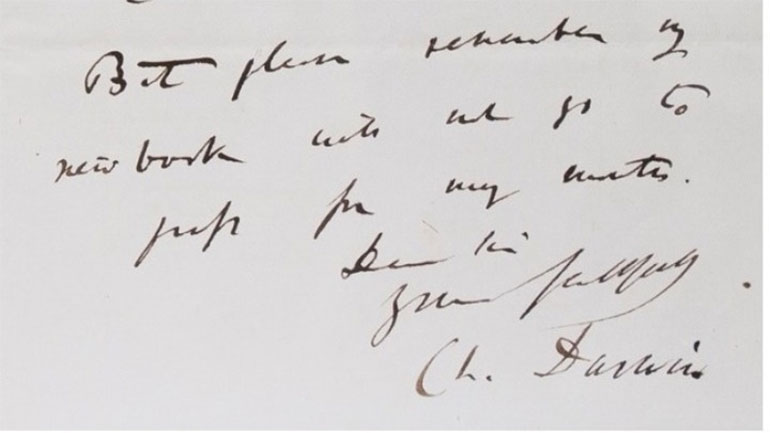 But please remember my
new book will not go to
press for many months.
Dear Sir
Yours faithfully
Ch. Darwin